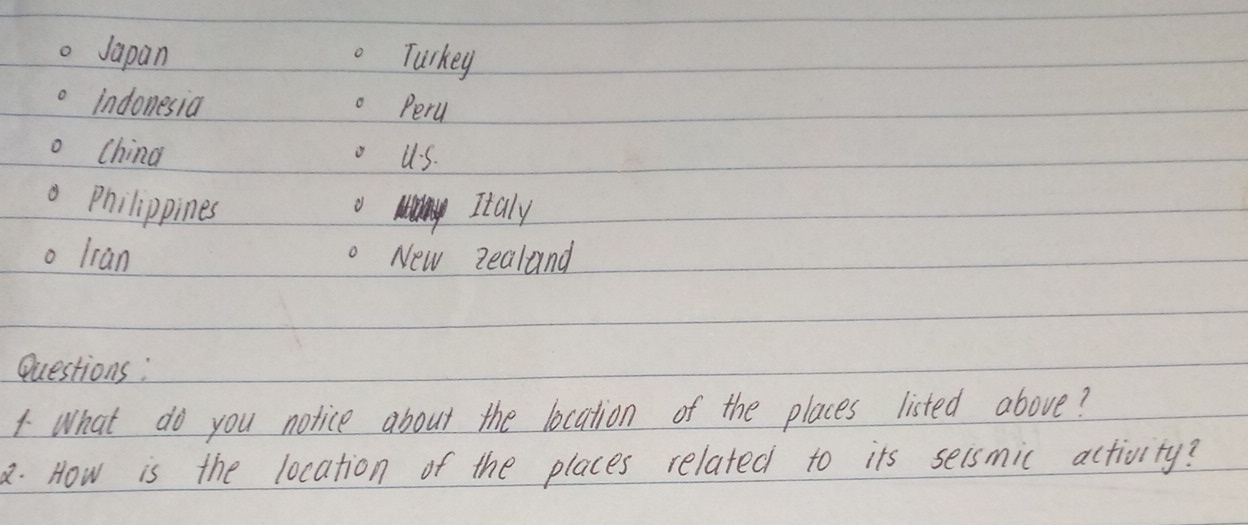 o Japan o Turkey
o Indonesia o Peru
o China o U.S.
o Philippines o Italy
o Iran o New Zealand
Questions:
1. What do you notice about the location of the places listed above?
2. How is the location of the places related to its seismic activity?